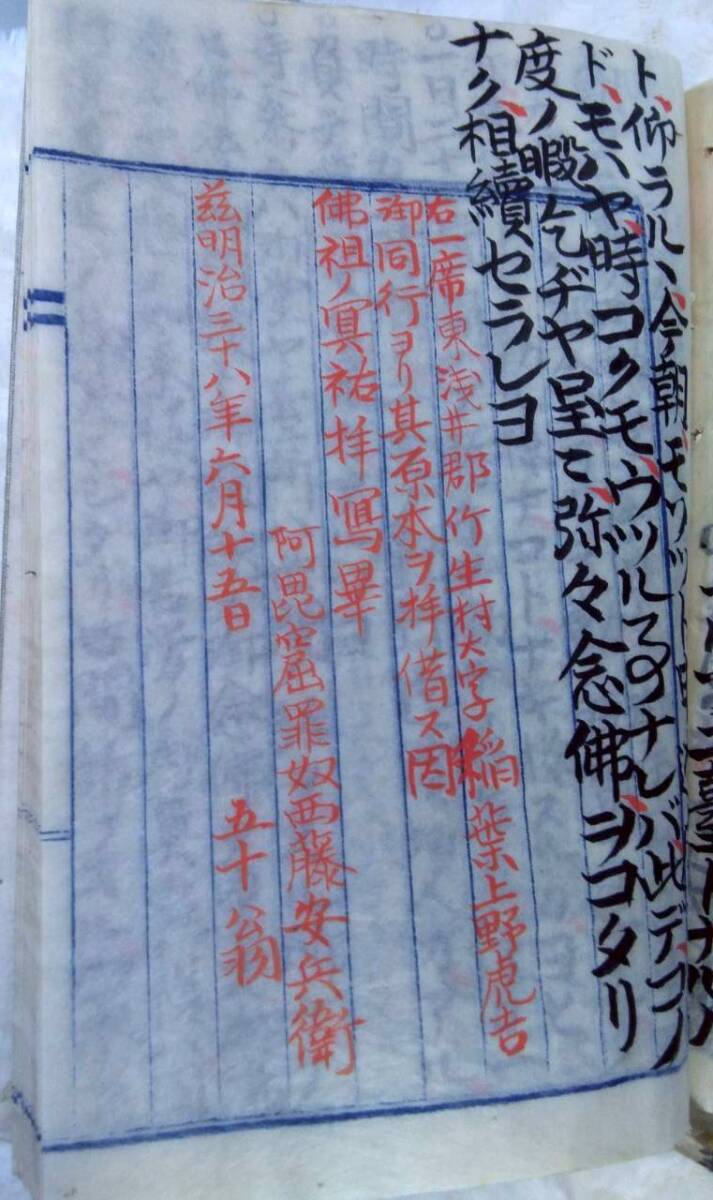 ト、仰ラル、今朝
ド、モハヤ、時コクモ、ウツルヿナレバ、此デ、コノ
度ノ暇乞ヂヤ呈ニ、弥々念佛、ヲコタリ
ナク、相續セラレヨ
右一席東浅井郡竹生村大字稲葉上野虎吉
御同行ヨリ其原本ヲ拝借ス因
佛祖ノ冥祐拝冩畢
阿毘窟罪奴西藤安兵衛
茲明治三十八年六月十五日
五十八翁